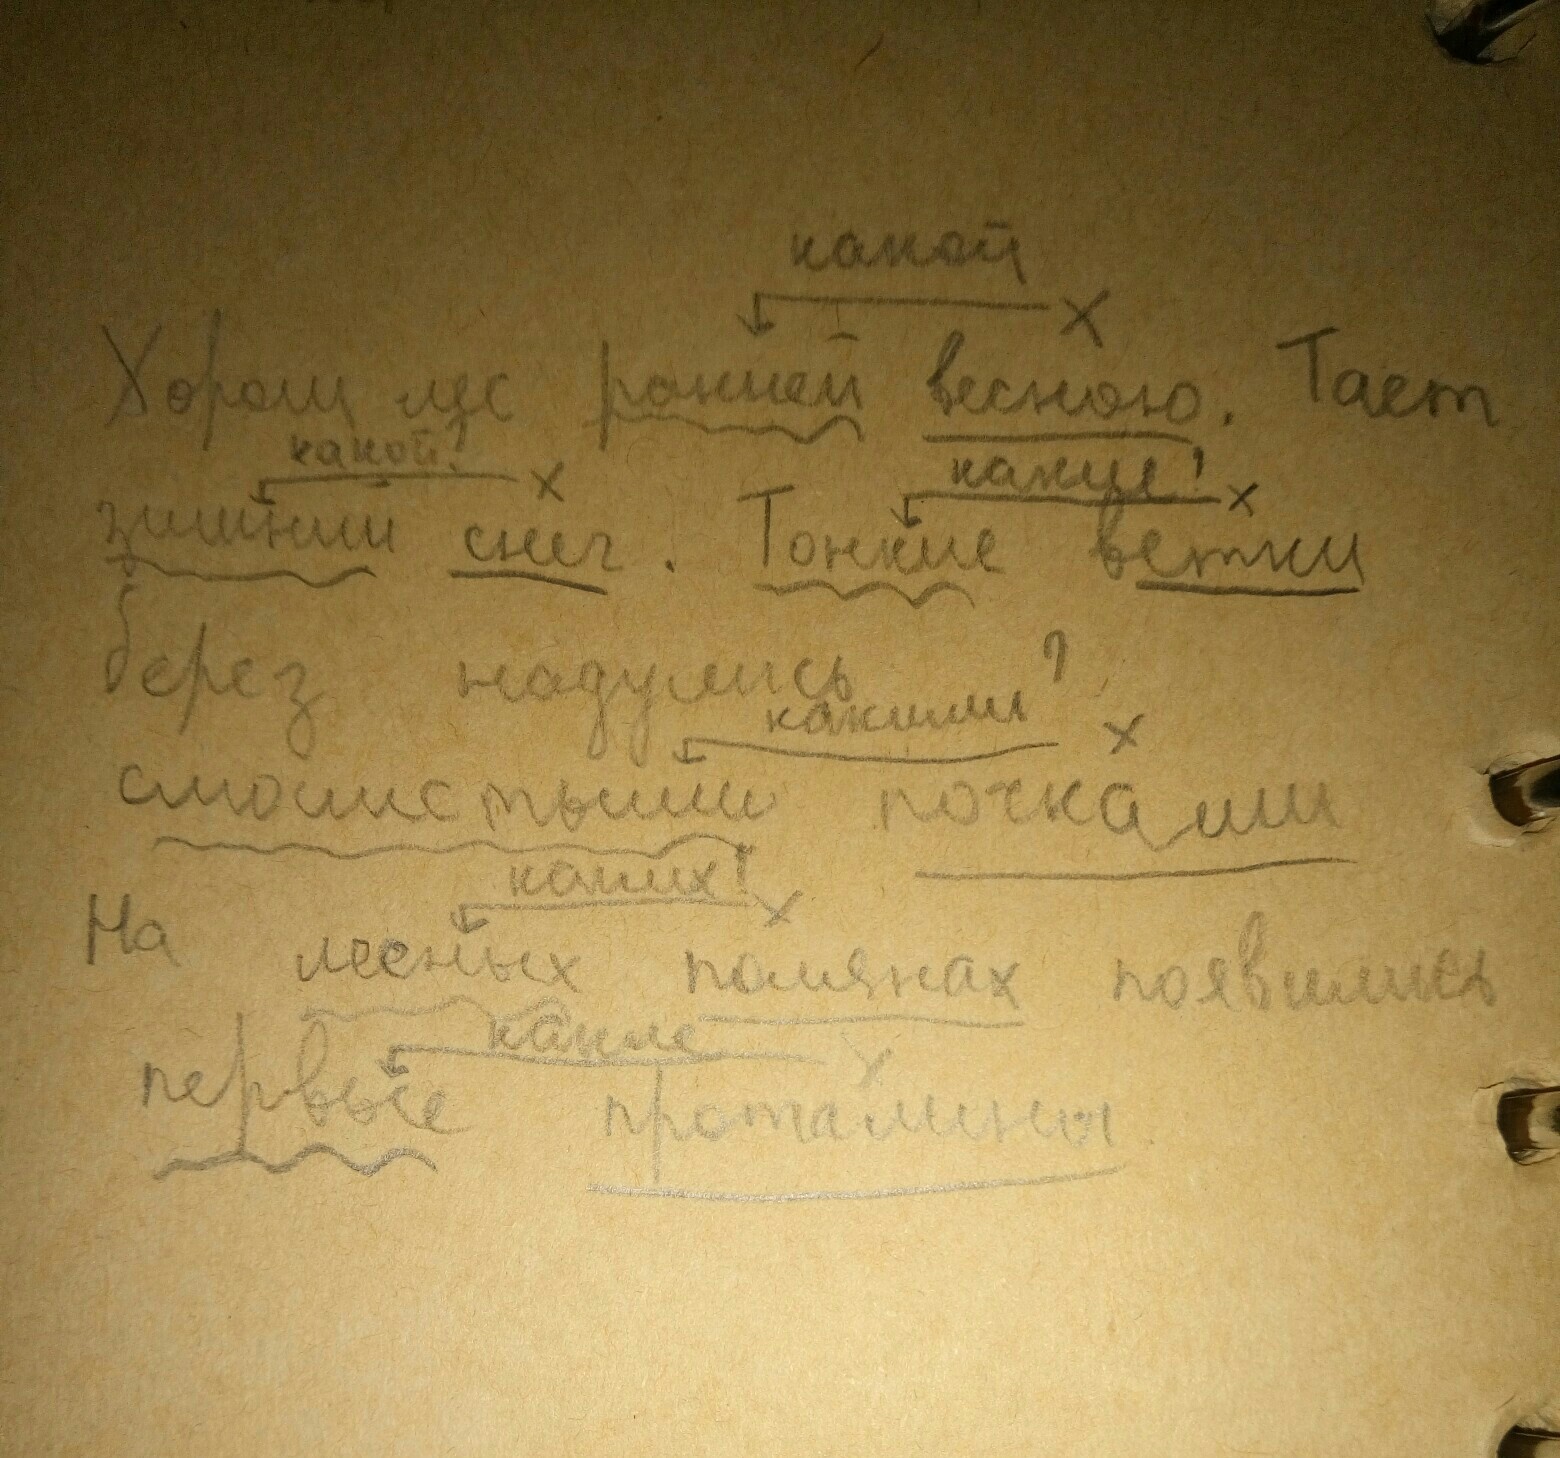 какой
Хорош лес ранней весною. Тает
какой? какие?
зимний снег. Тонкие ветки
берез надулись
какими?
смолистыми почками
каких?
На лесных полянах появились
какие
первые проталины.